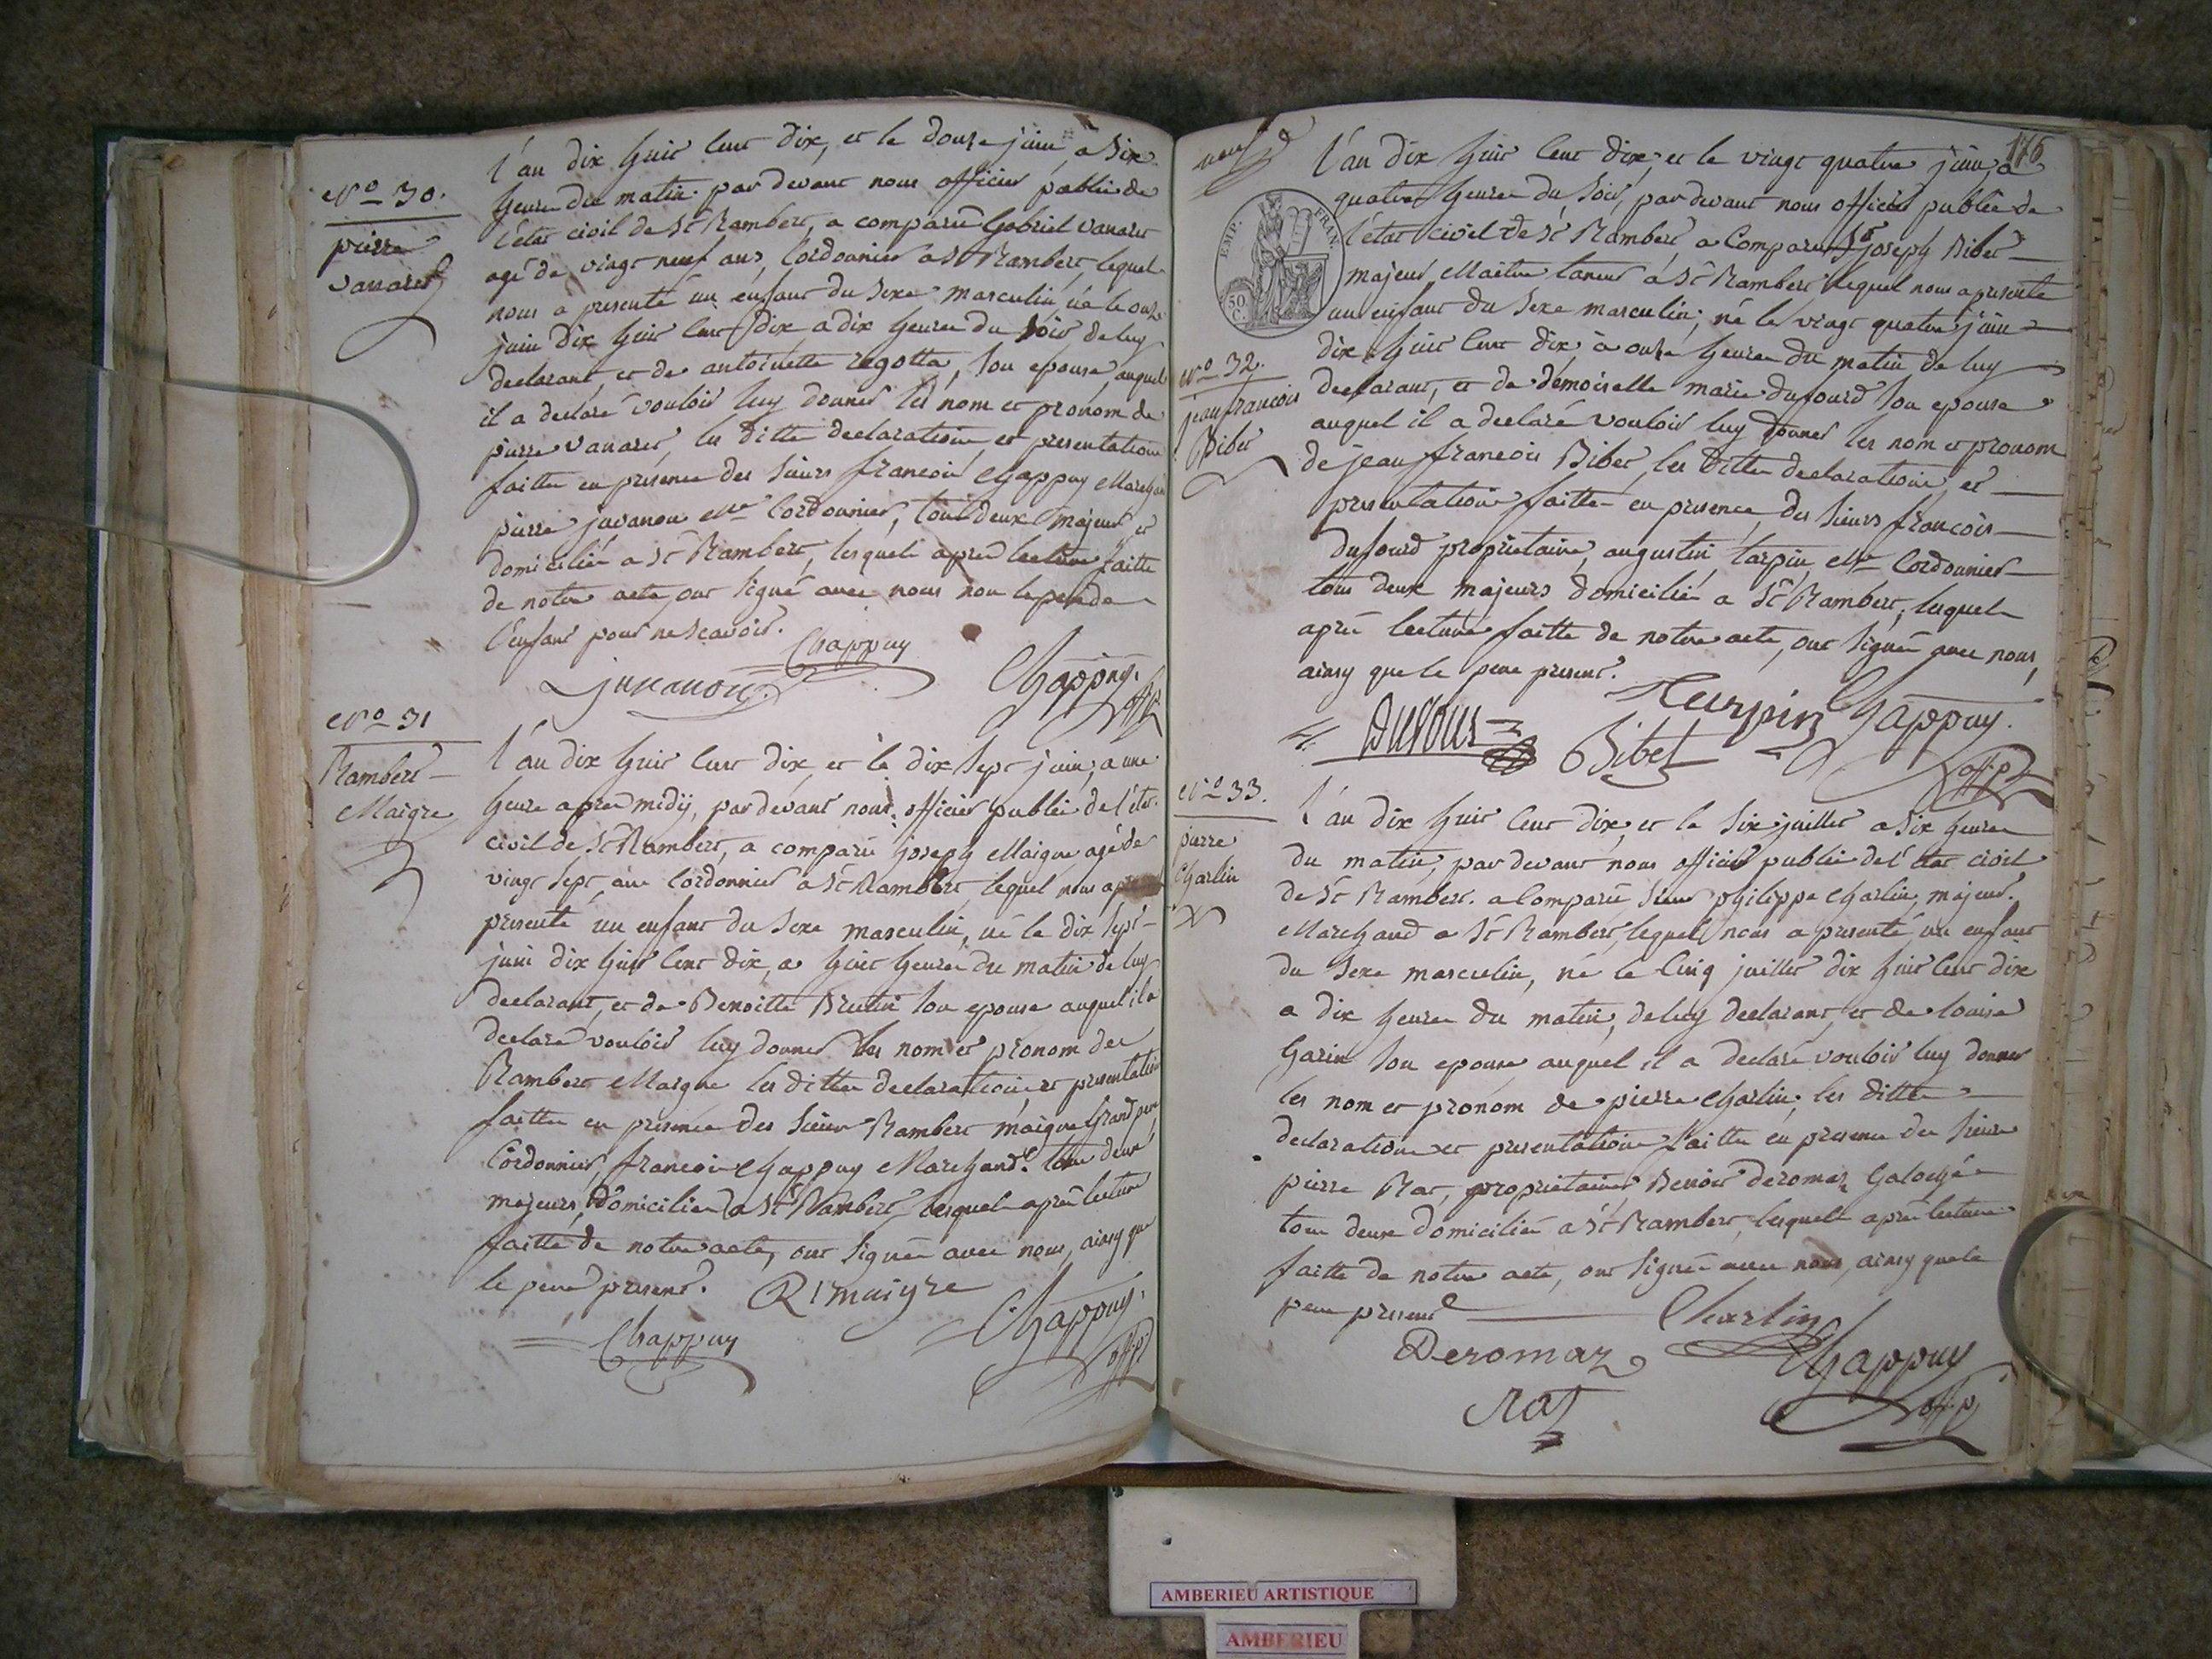 N.o 30.
pierre
vanaret
L'an dix huit cent dix, et le douze juin, a six
heure du matin par devant nous officier public de
l'état civil de St Rambert, a comparu Gabriel vanaret
agé de vingt neuf ans, Cordonnier a St Rambert, lequel
nous a presenté un enfant du sexe masculin né le onze
juin dix huit cent dix, a dix heures du soir, de luy
declarant, et de antoinette regotta, son epouse, auquel
il a declaré vouloir luy donner les nom et pronom de
pierre vanaret, les ditte declaration et presentation
faitte en présence des sieurs francois Chappuy Marchand
pierre juvanon Me Cordonnier, tout deux majeurs et
domicilié a St Rambert, lesquels apres lecture faitte
de notre acte, ont signé avec nous non le pere de
l'enfant pour ne scavoir.
Chappuy
juvanon
Chappuy
off. p.
N.o 31
Rambert
Maigre
L'an dix huit cent dix, et le dix sept juin, a une
heure apres midy, par devant nous officier public de l'état
civil de St Rambert, a comparu joseph Maigre agé de
vingt sept ans Cordonnier a St Rambert, lequel nous a
presenté un enfant du sexe masculin, né le dix sept
juin dix huit cent dix, a huit heures du matin de luy
declarant, et de Benoitte Brutin son epouse auquel il a
declaré vouloir luy donner les nom et pronom de
Rambert Maigre les ditte declaration et presentation
faitte en présence des sieurs Rambert maigre Grand pere
Cordonnier, francois Chappuy Marchand. tous deux
majeurs, domicilié a St Rambert, lesquels apres lecture
faitte de notre acte, ont signé avec nous, ainsy que
le pere present.
R maigre
Chappuy
Chappuy
off. p.
176
neuf
EMP. FRAN.
50
C.
L'an dix huit cent dix, et le vingt quatre juin, a
quatre heures du soir, par devant nous officier public de
l'état civil de St Rambert a Comparu Sr joseph Bibet
majeur, Maitre taneur a St Rambert lequel nous a presenté
un enfant du sexe masculin, né le vingt quatre juin
dix huit cent dix, a onze heures du matin de luy
declarant, et de demoiselle marie dufourd son epouse
auquel il a declaré vouloir luy donner les nom et pronom
de jean francois Bibet, les ditte declaration, et
presentation faitte en presence, des sieurs francois
dufourd proprietaire, augustin tarpin Me Cordonnier
tous deux majeurs domicilié a St Rambert, lesquels
après lecture faitte de notre acte, ont signé avec nous,
ainsy que le pere present.
N.o 32.
jean francois
Bibet
Dufour
Bibet
Tarpin
Chappuy.
off. p.
N.o 33.
pierre
Charlin
L'an dix huit cent dix, et le six juillet a six heures
du matin, par devant nous officier public de l'état civil
de St Rambert. a Comparu sieur philippe Charlin, majeur.
Marchand a St Rambert, lequel nous a presenté un enfant
du sexe masculin, né le Cinq juillet dix huit cent dix
a dix heures du matin, de luy declarant, et de louise
Garin son epouse auquel il a declaré vouloir luy donner
les nom et pronom de pierre Charlin, les ditte
declaration et presentation faitte en presence des sieurs
pierre Rat, proprietaire, Benoit deromaz Galochée
tous deux domicilié a St Rambert, lesquels après lecture
faitte de notre acte, ont signé avec nous, ainsy que le
pere present
Charlin
Deromaz
Chappuy
off. p.
Rat
AMBERIEU ARTISTIQUE
AMBERIEU